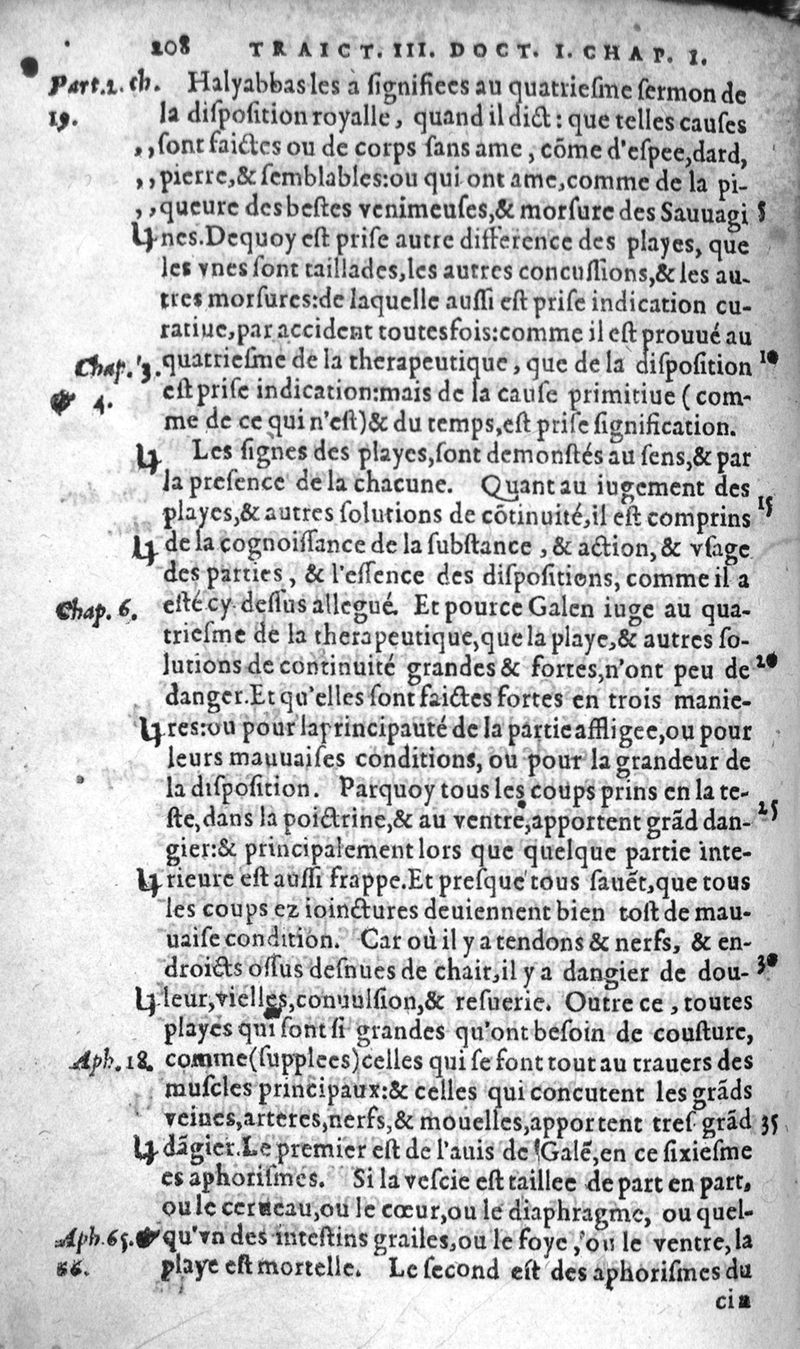 208 TRAICT. III. DOCT. I. CHAP. I.
Part.2. ch. Halyabbas les a ſignifiees au quatrieſme ſermon de
19. la diſpoſition royalle, quand il dict : que telles cauſes
,,ſont faictes ou de corps ſans ame, cõme d'eſpee,dard,
,,pierre,& ſemblables:ou qui ont ame,comme de la pi-
,,queure des beſtes venimeuſes,& morſure des Sauuagi 5
nes.Dequoy eſt priſe autre difference des playes, que
les vnes ſont taillades,les autres concuſſions,& les au-
tres morſures:de laquelle auſſi eſt priſe indication cu-
ratiue,par accident toutesfois:comme il eſt prouué au
Chap. 3. quatrieſme de la therapeutique, que de la diſpoſition 10
4. eſt priſe indication:mais de la cauſe primitiue (com-
me de ce qui n'eſt)& du temps,eſt priſe ſignification.
Les ſignes des playes,ſont demonſtés au ſens,& par
la preſence de la chacune. Quant au iugement des
playes,& autres ſolutions de cõtinuité,il eſt comprins 15
de la cognoiſſance de la ſubſtance, & action,& vſage
des parties, & l'eſſence des diſpoſitions, comme il a
Chap. 6. eſté cy deſſus allegué. Et pource Galen iuge au qua-
trieſme de la therapeutique,que la playe,& autres ſo-
lutions de continuité grandes & fortes,n'ont peu de 20
danger.Et qu'elles ſont faictes fortes en trois manie-
res:ou pour la principauté de la partie affligee,ou pour
leurs mauuaiſes conditions, ou pour la grandeur de
la diſpoſition. Parquoy tous les coups prins en la te-
ſte,dans la poictrine,& au ventre,apportent grãd dan- 25
gier:& principalement lors que quelque partie inte-
rieure eſt auſſi frappe.Et preſque tous ſauẽt,que tous
les coups ez ioinctures deuiennent bien toſt de mau-
uaiſe condition. Car où il y a tendons & nerfs, & en-
droicts oſſus deſnues de chair,il y a dangier de dou- 30
leur,vielles,conuulſion,& reſuerie. Outre ce, toutes
playes qui ſont ſi grandes qu'ont beſoin de couſture,
Aph. 18. comme(ſupplees)celles qui ſe font tout au trauers des
muſcles principaux:& celles qui concutent les grãds
veines,arteres,nerfs,& mouelles,apportent treſ grãd 35
dãgier.Le premier eſt de l'auis de Galẽ,en ce ſixieſme
es aphoriſmes. Si la veſcie eſt taillee de part en part,
ou le cerueau,ou le cœur,ou le diaphragme, ou quel-
Aph. 65. qu'vn des inteſtins grailes,ou le foye, ou le ventre,la
66. playe eſt mortelle. Le ſecond eſt des aphoriſmes du